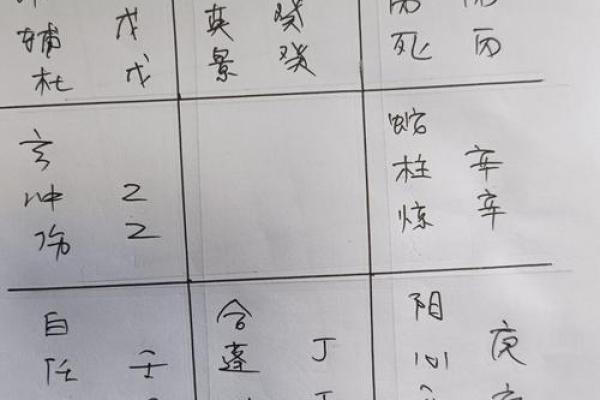 辅 戊
杜 戊
英 癸
景 癸
死 丙
玄
冲 乙
伤 乙
蛇
柱 辛
惊 辛
白
任 壬
合
蓬 丁
阴
心 庚